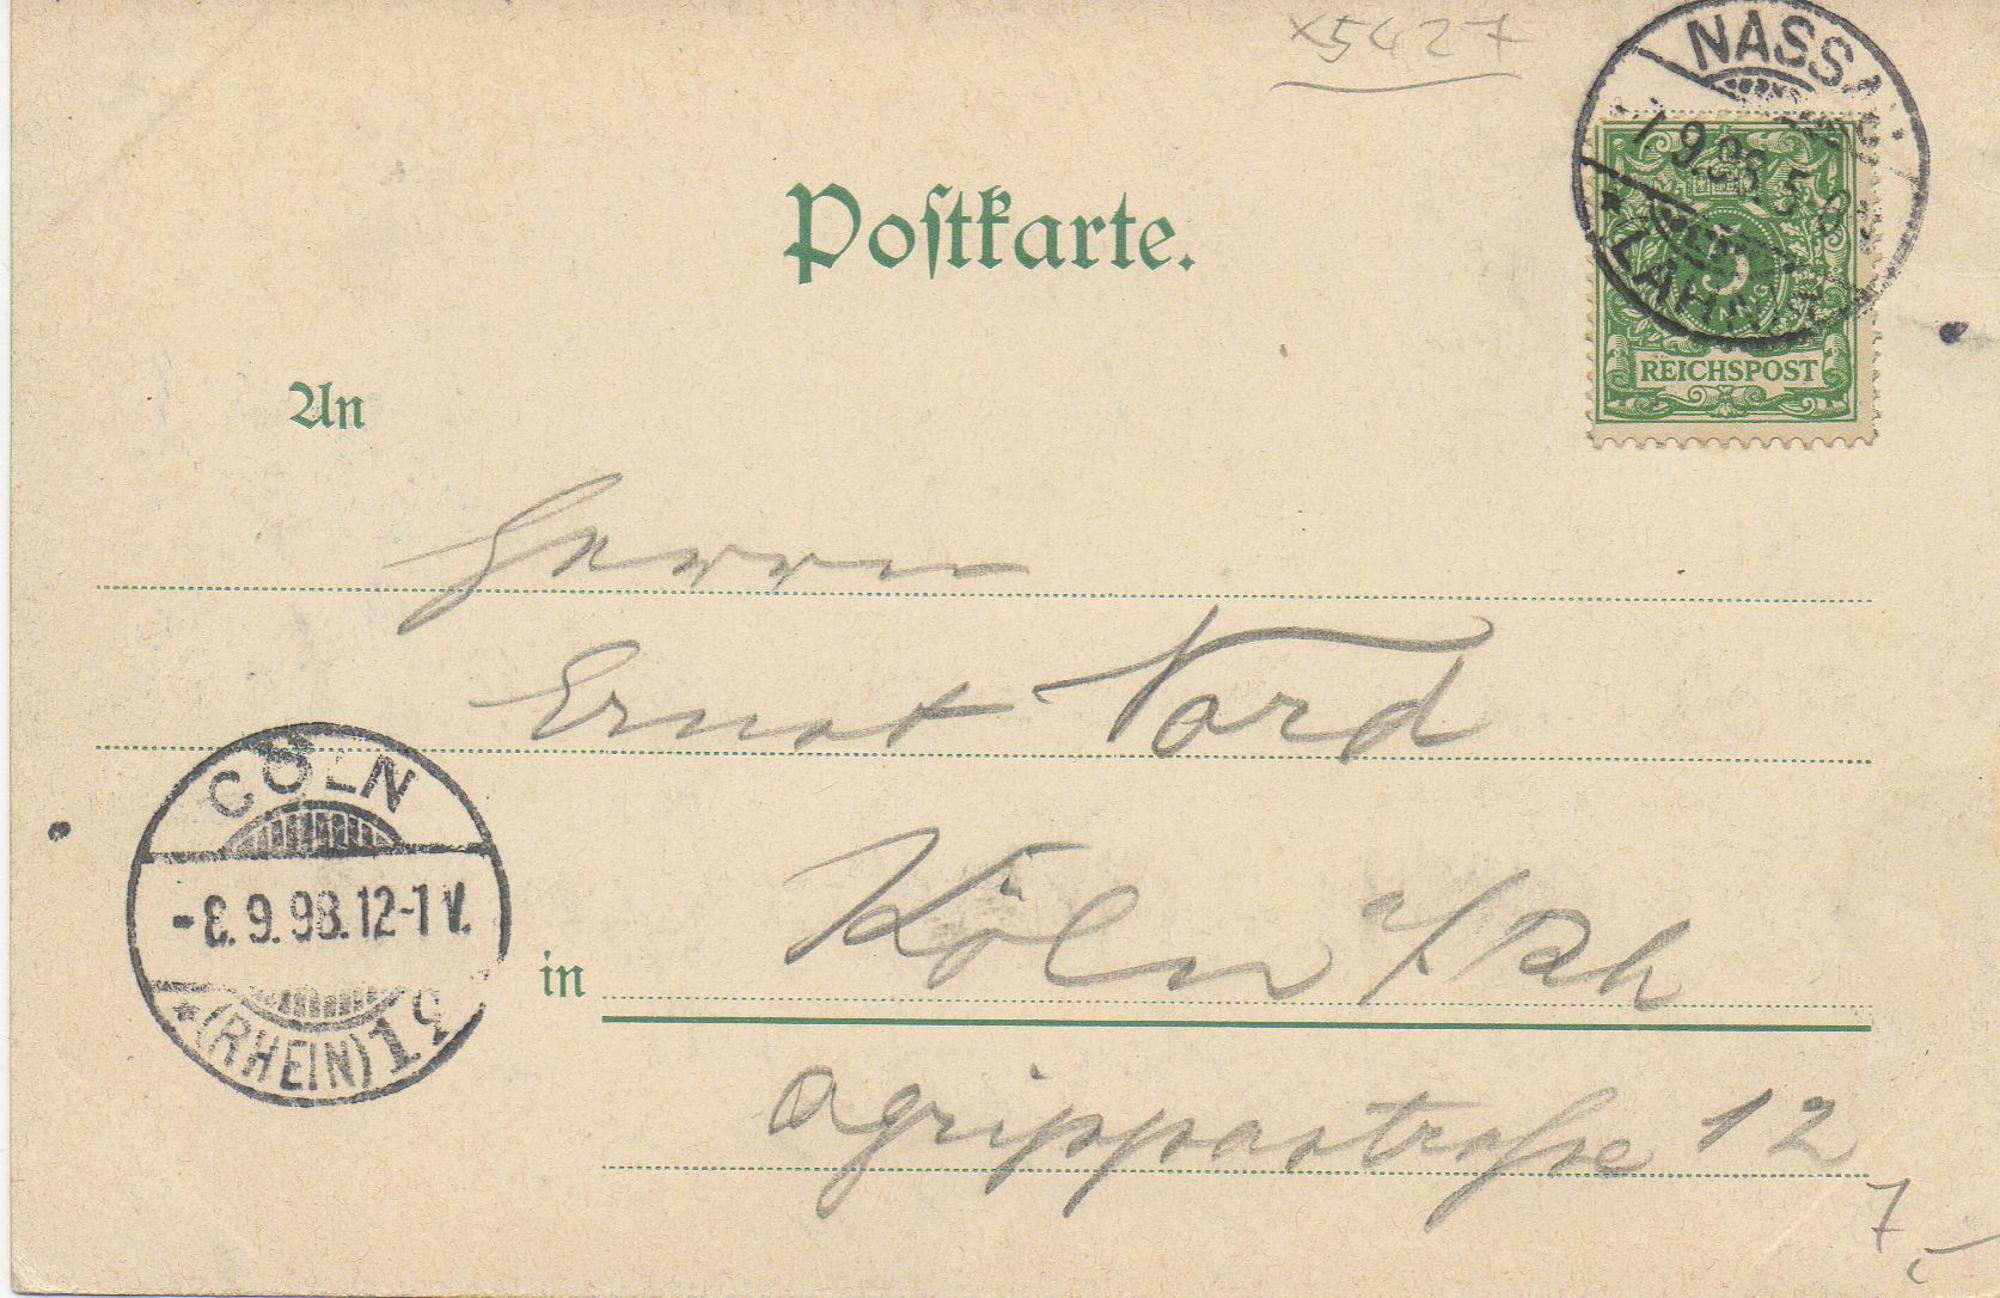 x5427
NASSAU
9.98. 5-
* (LAHN)
5
REICHSPOST
Postkarte.
An
Herrn
Ernst Nord
CÖLN
-8.9.98.12-1 V.
* (RHEIN) 1
in Köln a/Rh
Agrippastraße 12
7,-